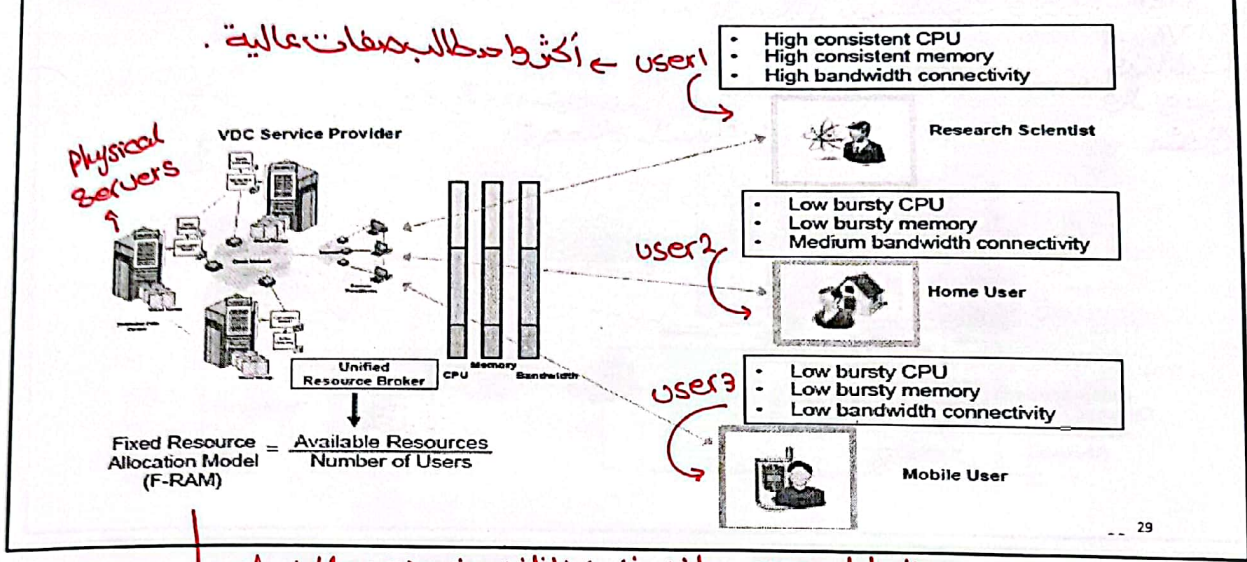 user1 → أكثر واحد طالب صفات عالية .
• High consistent CPU
• High consistent memory
• High bandwidth connectivity
Research Scientist
physical
servers
VDC Service Provider
• Low bursty CPU
• Low bursty memory
• Medium bandwidth connectivity
user2
Home User
Unified
Resource Broker
CPU
Memory
Bandwidth
• Low bursty CPU
• Low bursty memory
• Low bandwidth connectivity
user3
Mobile User
Fixed Resource
Allocation Model
(F-RAM)
=
Available Resources
Number of Users
29